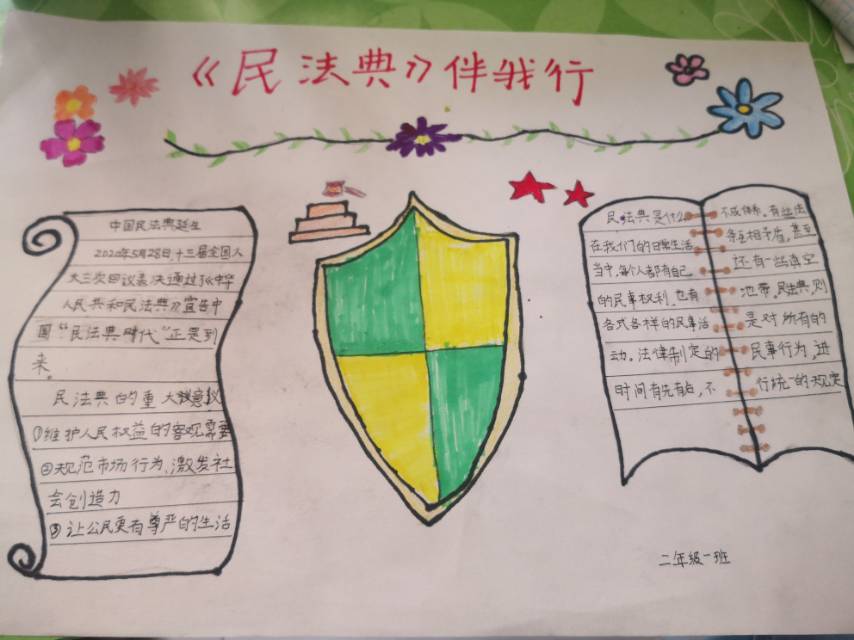 《民法典》伴我行
中国民法典诞生
2020年5月28日,十三届全国人
大三次回议表决通过《中华
人民共和民法典》宣告中
国“民法典时代”正是到
来。
民法典的重大意义
①维护人民权益的客观需要
②规范市场行为、激发社
会创造力
③让公民更有尊严的生活
民法典是什么
在我们的日常生活
当中,每个人都有自己
的民事权利,也有
各式各样的民事活
动。法律制定的
时间有先有后,不
不成体系。有些法
条互相矛盾,甚至
还有一些真空
地带。民法典,则
是对所有的
民事行为,进
行统一的规定
二年级一班